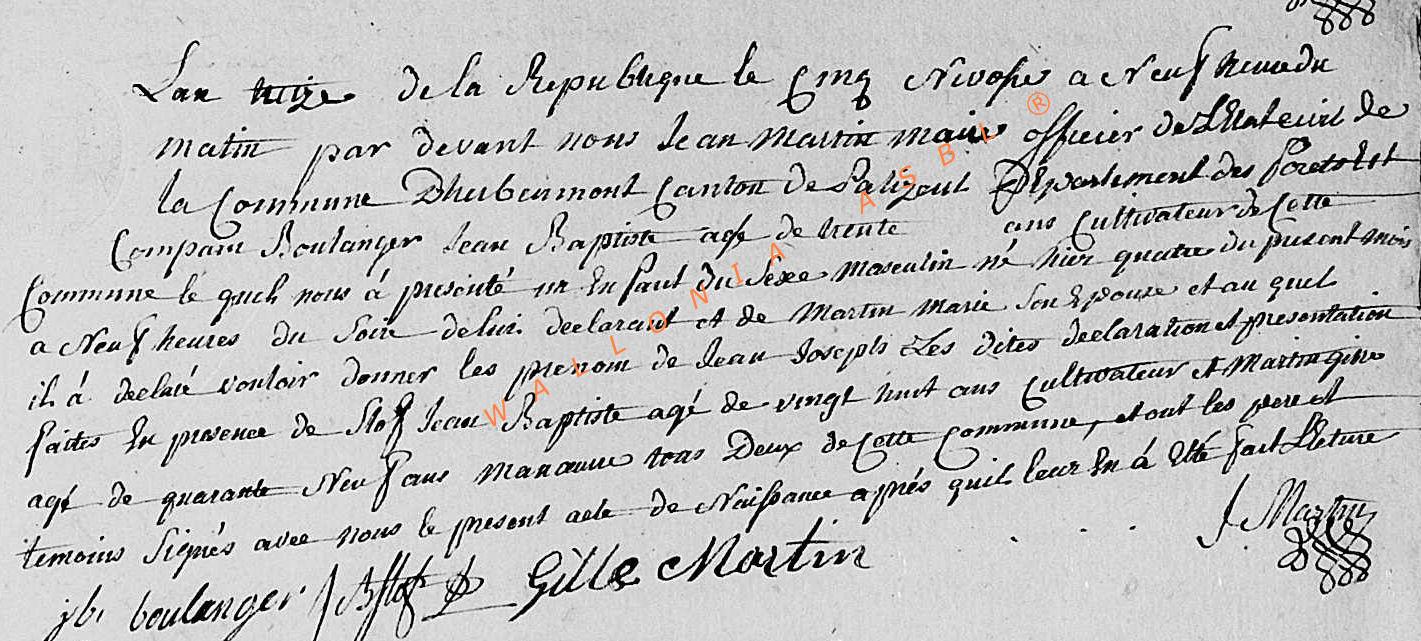 Lan treize de la Republique le Cinq Nivose a Neuf heure du
matin par devant nous Jean Martin maire officier de LEtat Civil de
la Commune Dherbeumont Canton de Palizeul Département des forets Est
Comparu Boulanger Jean Baptiste agé de trente ans Cultivateur de Cette
Commune le quel nous à presenté un Enfant du Sexe masculin né hier quatre du present mois
a Neuf heures du Soir de lui declarant et de Martin Marie Son Epouse et au quel
il à declaré vouloir donner les prenom de Jean Joseph Les dites declaration et presentation
faites En presence de Stof Jean Baptiste agé de vingt huit ans Cultivateur et Martin gille
agé de quarante Neuf ans manœuvre tous Deux de Cette Commune, et ont les pere et
temoins Signés avec nous le present acte de Naissance aprés quil leur En à Eté fait Lecture
J Martin
jb. boulanger J B Stof Gille Martin
WALLONIA ASBL ®